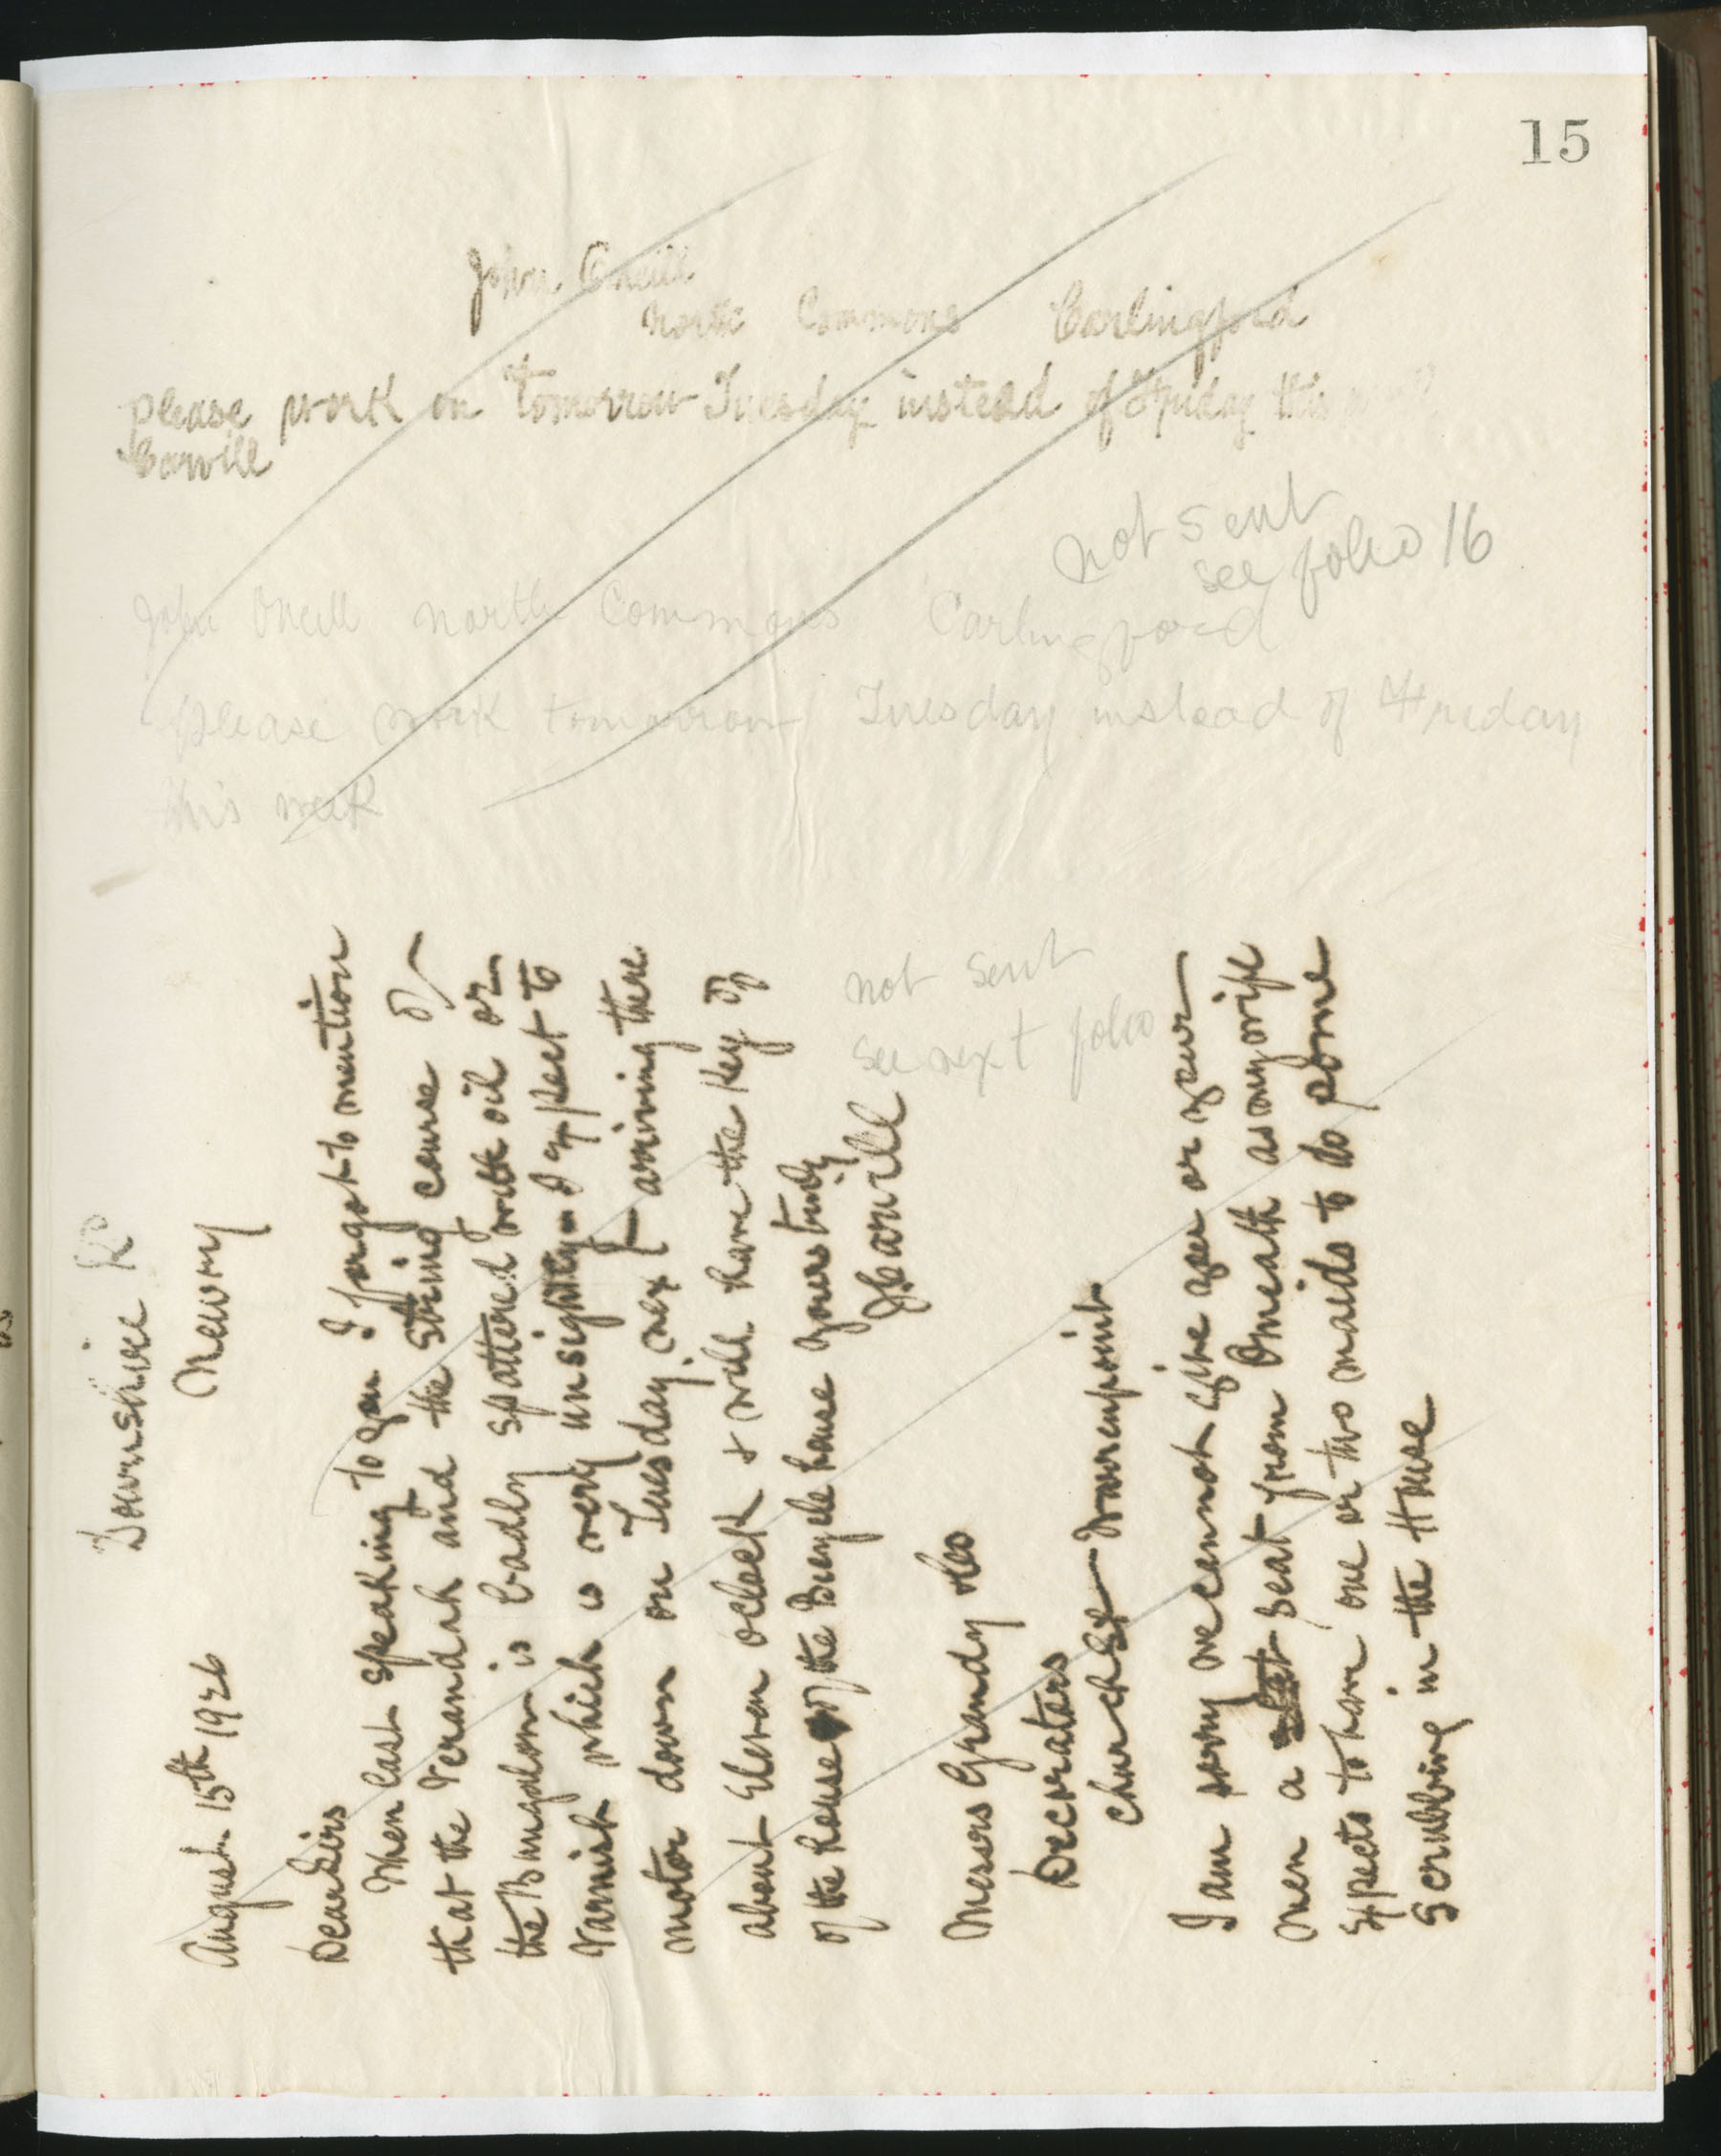 15
John Oneill
North Commons Carlingford
please work on tomorrow Tuesday instead of Friday this
Carvill
not sent
see folio 16
John Oneill North Commons Carlingford
please work tomorrow Tuesday instead of Friday
this week
Downshire Rd
Newry
August 15th 1926
Dear Sirs
When last speaking to you I forgot to mention
that the Verandah and the string course of
the Bungalow is badly spattered with oil or
Varnish which is very unsightly - I expect to
motor down on Tuesday next arriving there
about Eleven oclock & will have the Key of
of the house of the Bicycle house yours truly
JCarvill
not sent
see next folio
Messrs Grandy & Co
Decorators
Church St Warrenpoint
I am sorry we cannot give you or your
men a seat from Omeath as my wife
expects to have one or two maids to do some
Scrubbing in the House